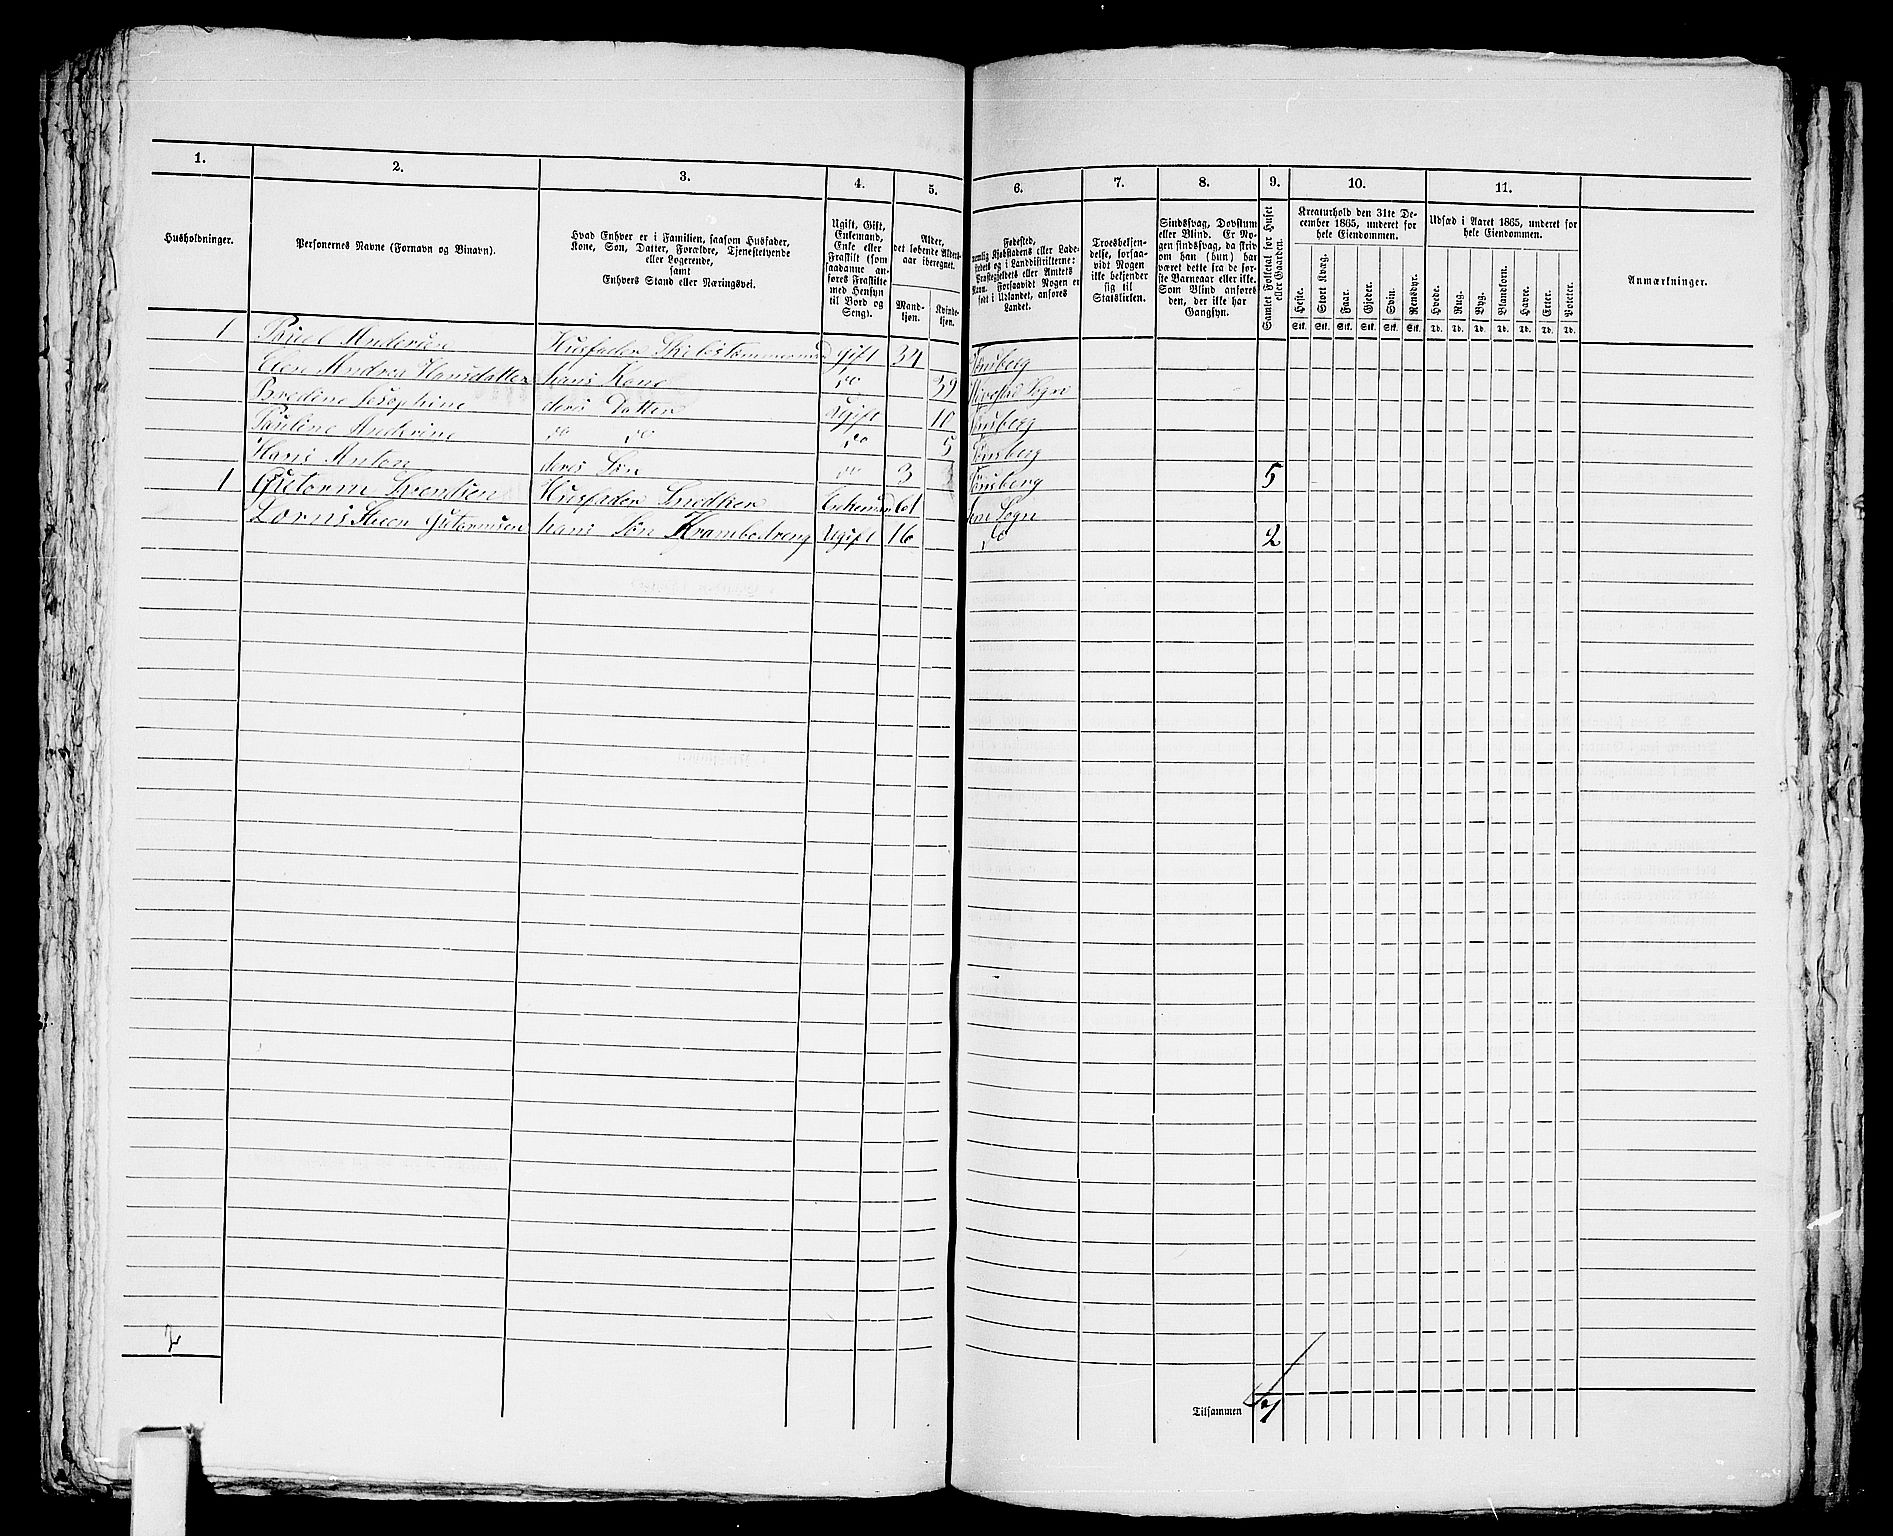 1. 2. 3. 4. 5. 6. 7. 8. 9. 10. 11.
Husholdninger.
Personernes Navne (Fornavn og Binavn).
Hvad Enhver er i Familien, saasom Husfader,
Kone, Søn, Datter, Forældre, Tjenestetyende
eller Logerende,
samt
Enhvers Stand eller Næringsvei.
Ugift, Gift,
Enkemand,
Enke eller
Fraskilt (som
saadanne an-
føres Fraskilte
med Hensyn
til Bord og
Seng).
Alder,
det løbende Alders-
aar iberegnet.
Mand-
kjøn.
Kvinde-
kjøn.
Fødested,
nemlig Kjøbstadens eller Lade-
stedets og i Landdistrikterne:
Præstegjeldets eller Amtets
Navn. Forsaavidt Nogen er
født i Udlandet, anføres
Landet.
Troesbekjen-
delse, forsaa-
vidt Nogen
ikke bekjender
sig til
Statskirken.
Sindssvag, Døvstum
eller Blind. Er No-
gen sindssvag, da skriv
om han (hun) har
været dette fra de før-
ste Barneaar eller ikke.
Som Blind anføres
den, der ikke har
Gangsyn.
Samlet Folketal for Huset
eller Gaarden.
Kreaturhold den 31te De-
cember 1865, underet for
hele Eiendommen.
Heste. Stort Kvæg. Faar. Gjeder. Svin. Rensdyr.
Stk. Stk. Stk. Stk. Stk. Stk.
Udsæd i Aaret 1865, underet for
hele Eiendommen.
Hvede. Rug. Byg. Blandkorn. Havre. Erter. Poteter.
Td. Td. Td. Td. Td. Td. Td.
Anmærkninger.
1 Andersen Husfader Skibstømmermand gift 34 Tønsberg
Andrea Hansdatter hans Kone do 39 Sogn
Josephine deres Datter Ugift 10 Tønsberg
Pauline do do do 5 Tønsberg
Hans Anton deres Søn do 3 Tønsberg 5
1 Gutorm Svendsen Husfader Snedker Enkemand 61 Sogn
Steen Gutormsen hans Søn Krambodreng Ugift 16 do 2
2
Tilsammen 7